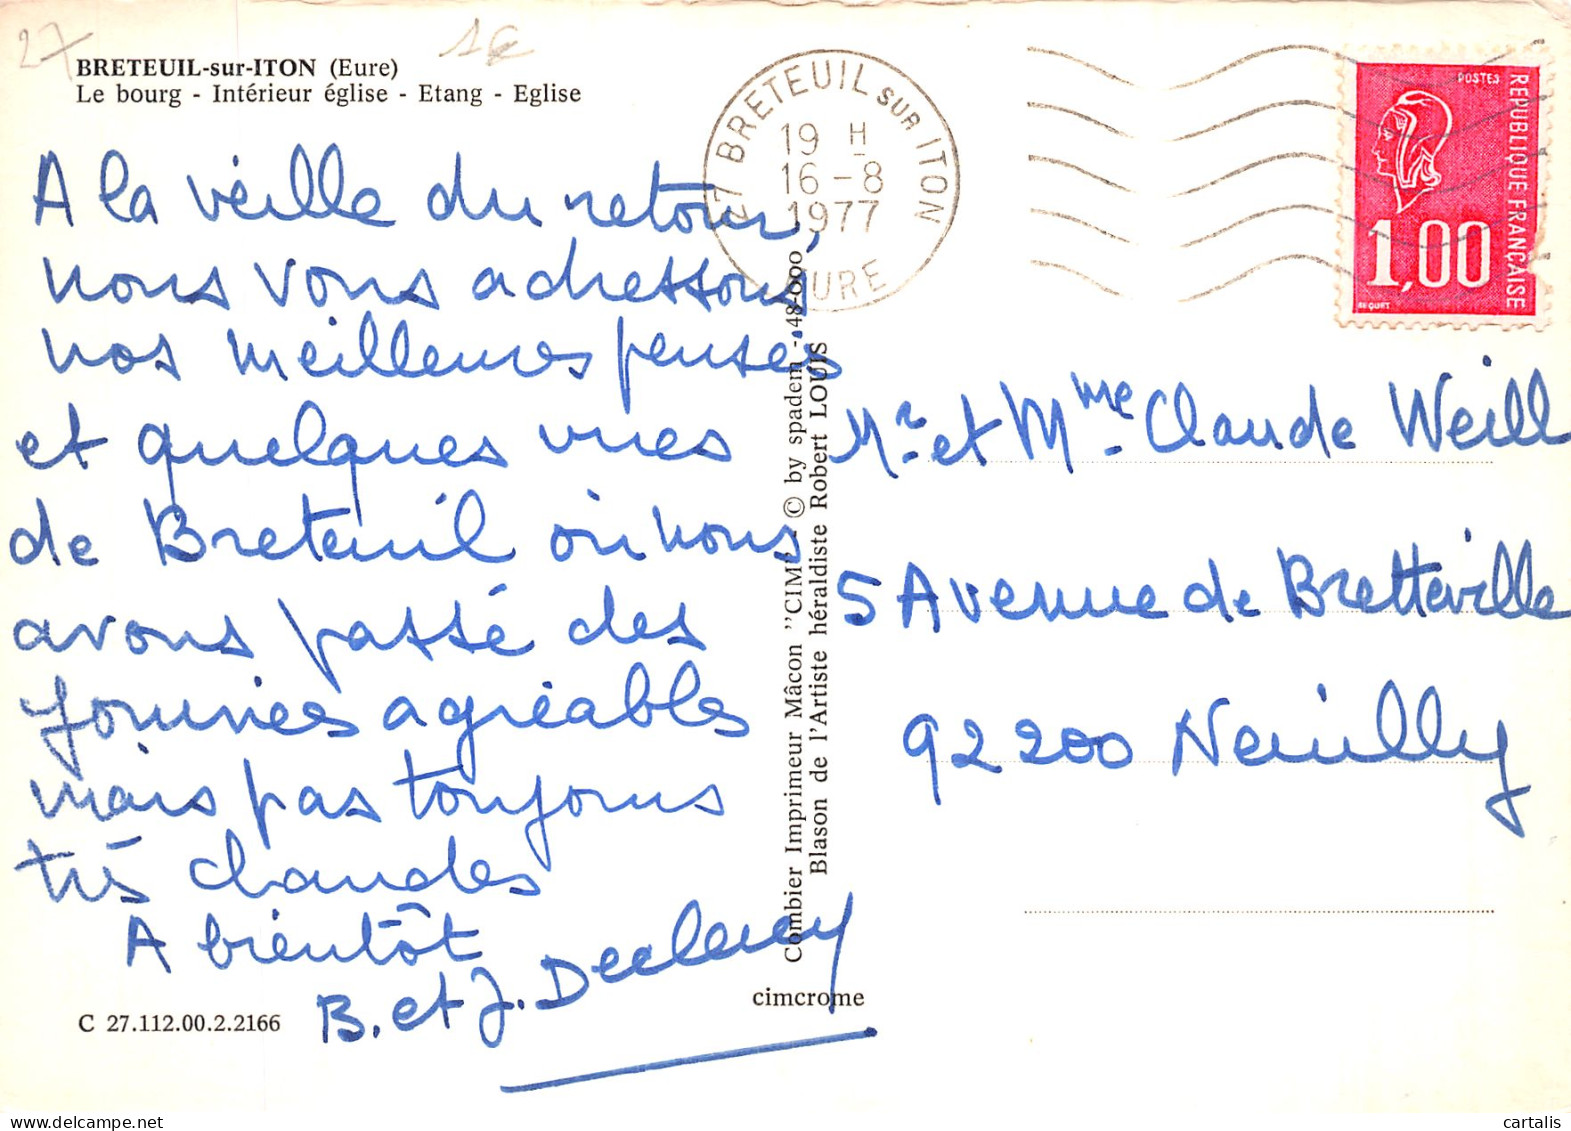 27
BRETEUIL-sur-ITON (Eure)
Le bourg - Intérieur église - Etang - Eglise
A la veille du retour,
nous vous adressons
nos meilleures pensées
et quelques vues
de Breteuil où nous
avons passé des
journées agréables
mais pas toujours
très chaudes
A bientôt
B. et J.
C 27.112.00.2.2166
Combier Imprimeur Mâcon "CIM" - © by spadem - 48-000
Blason de l'Artiste héraldiste Robert LOUIS
cimcrome
27 BRETEUIL SUR ITON
19 H
16 - 8
1977
EURE
POSTES
REPUBLIQUE FRANÇAISE
1,00
BEQUET
Mr et Mme Claude Weill
5 Avenue de Bretteville
92200 Neuilly
cartalis